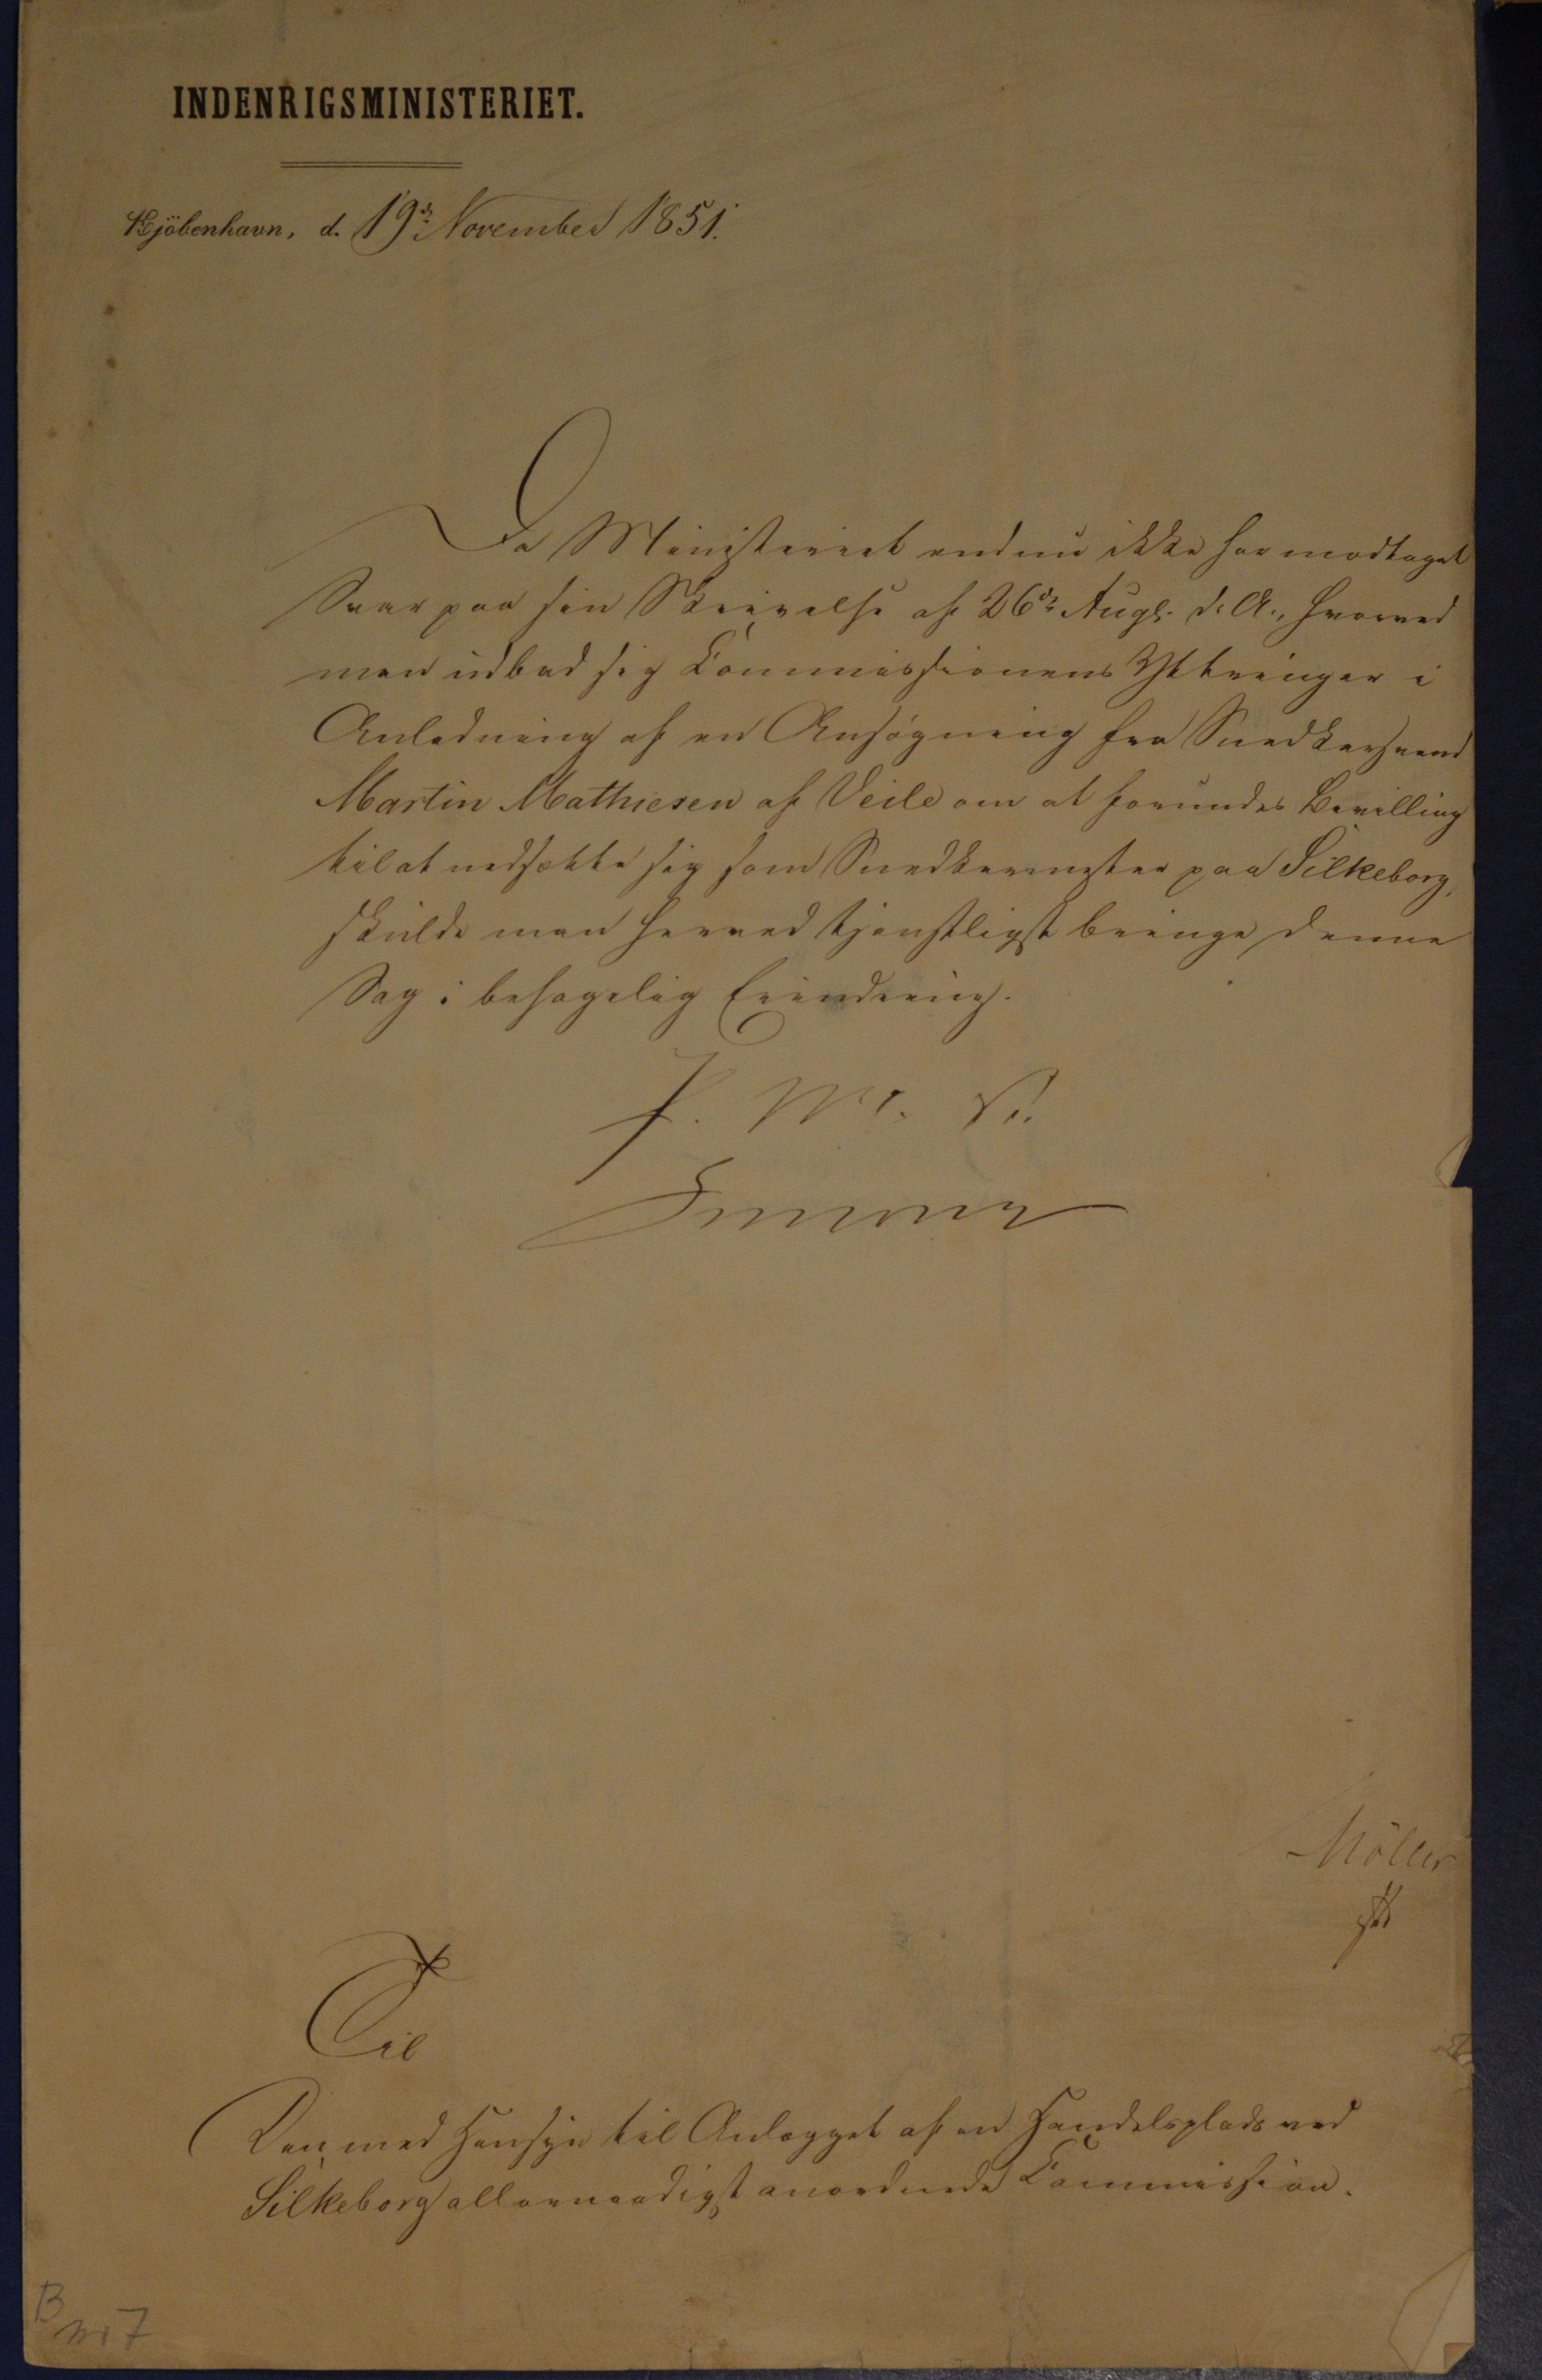 INDENRIGSMINISTERIET.
Kjöbenhavn, d. 19de November 1851.
Da Ministeriet endnu ikke har modtaget
Svar paa sin Skrivelse af 26de Augs. d. A., hvorved
man udbad sig Commissionens Yttringer i
Anledning af en Ansøgning fra Snedkersvend
Martin Mathiesen af Veile om at forundes Bevilling
til at nedsætte sig som Snedkermester paa Silkeborg,
skulde man herved tjenstligst bringe denne
Sag i behagelig Erindring.
F. M. F.
Møller
Til
Den med Hensyn til Anlægget af en Handelsplads ved
Silkeborg allernaadigst anordnede Commission.
B
nr 7